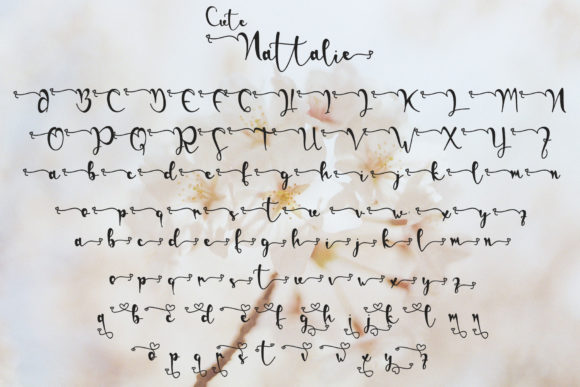 Cute
Nattalie
A B C D E F G H I J K L M N
O P Q R S T U V W X Y Z
a b c d e f g h i j k l m n
o p q r s t u v w x y z
a b c d e f g h i j k l m n
o p q r s t u v w x y z
a b c d e f g h i j k l m n
o p q r s t v w x y z